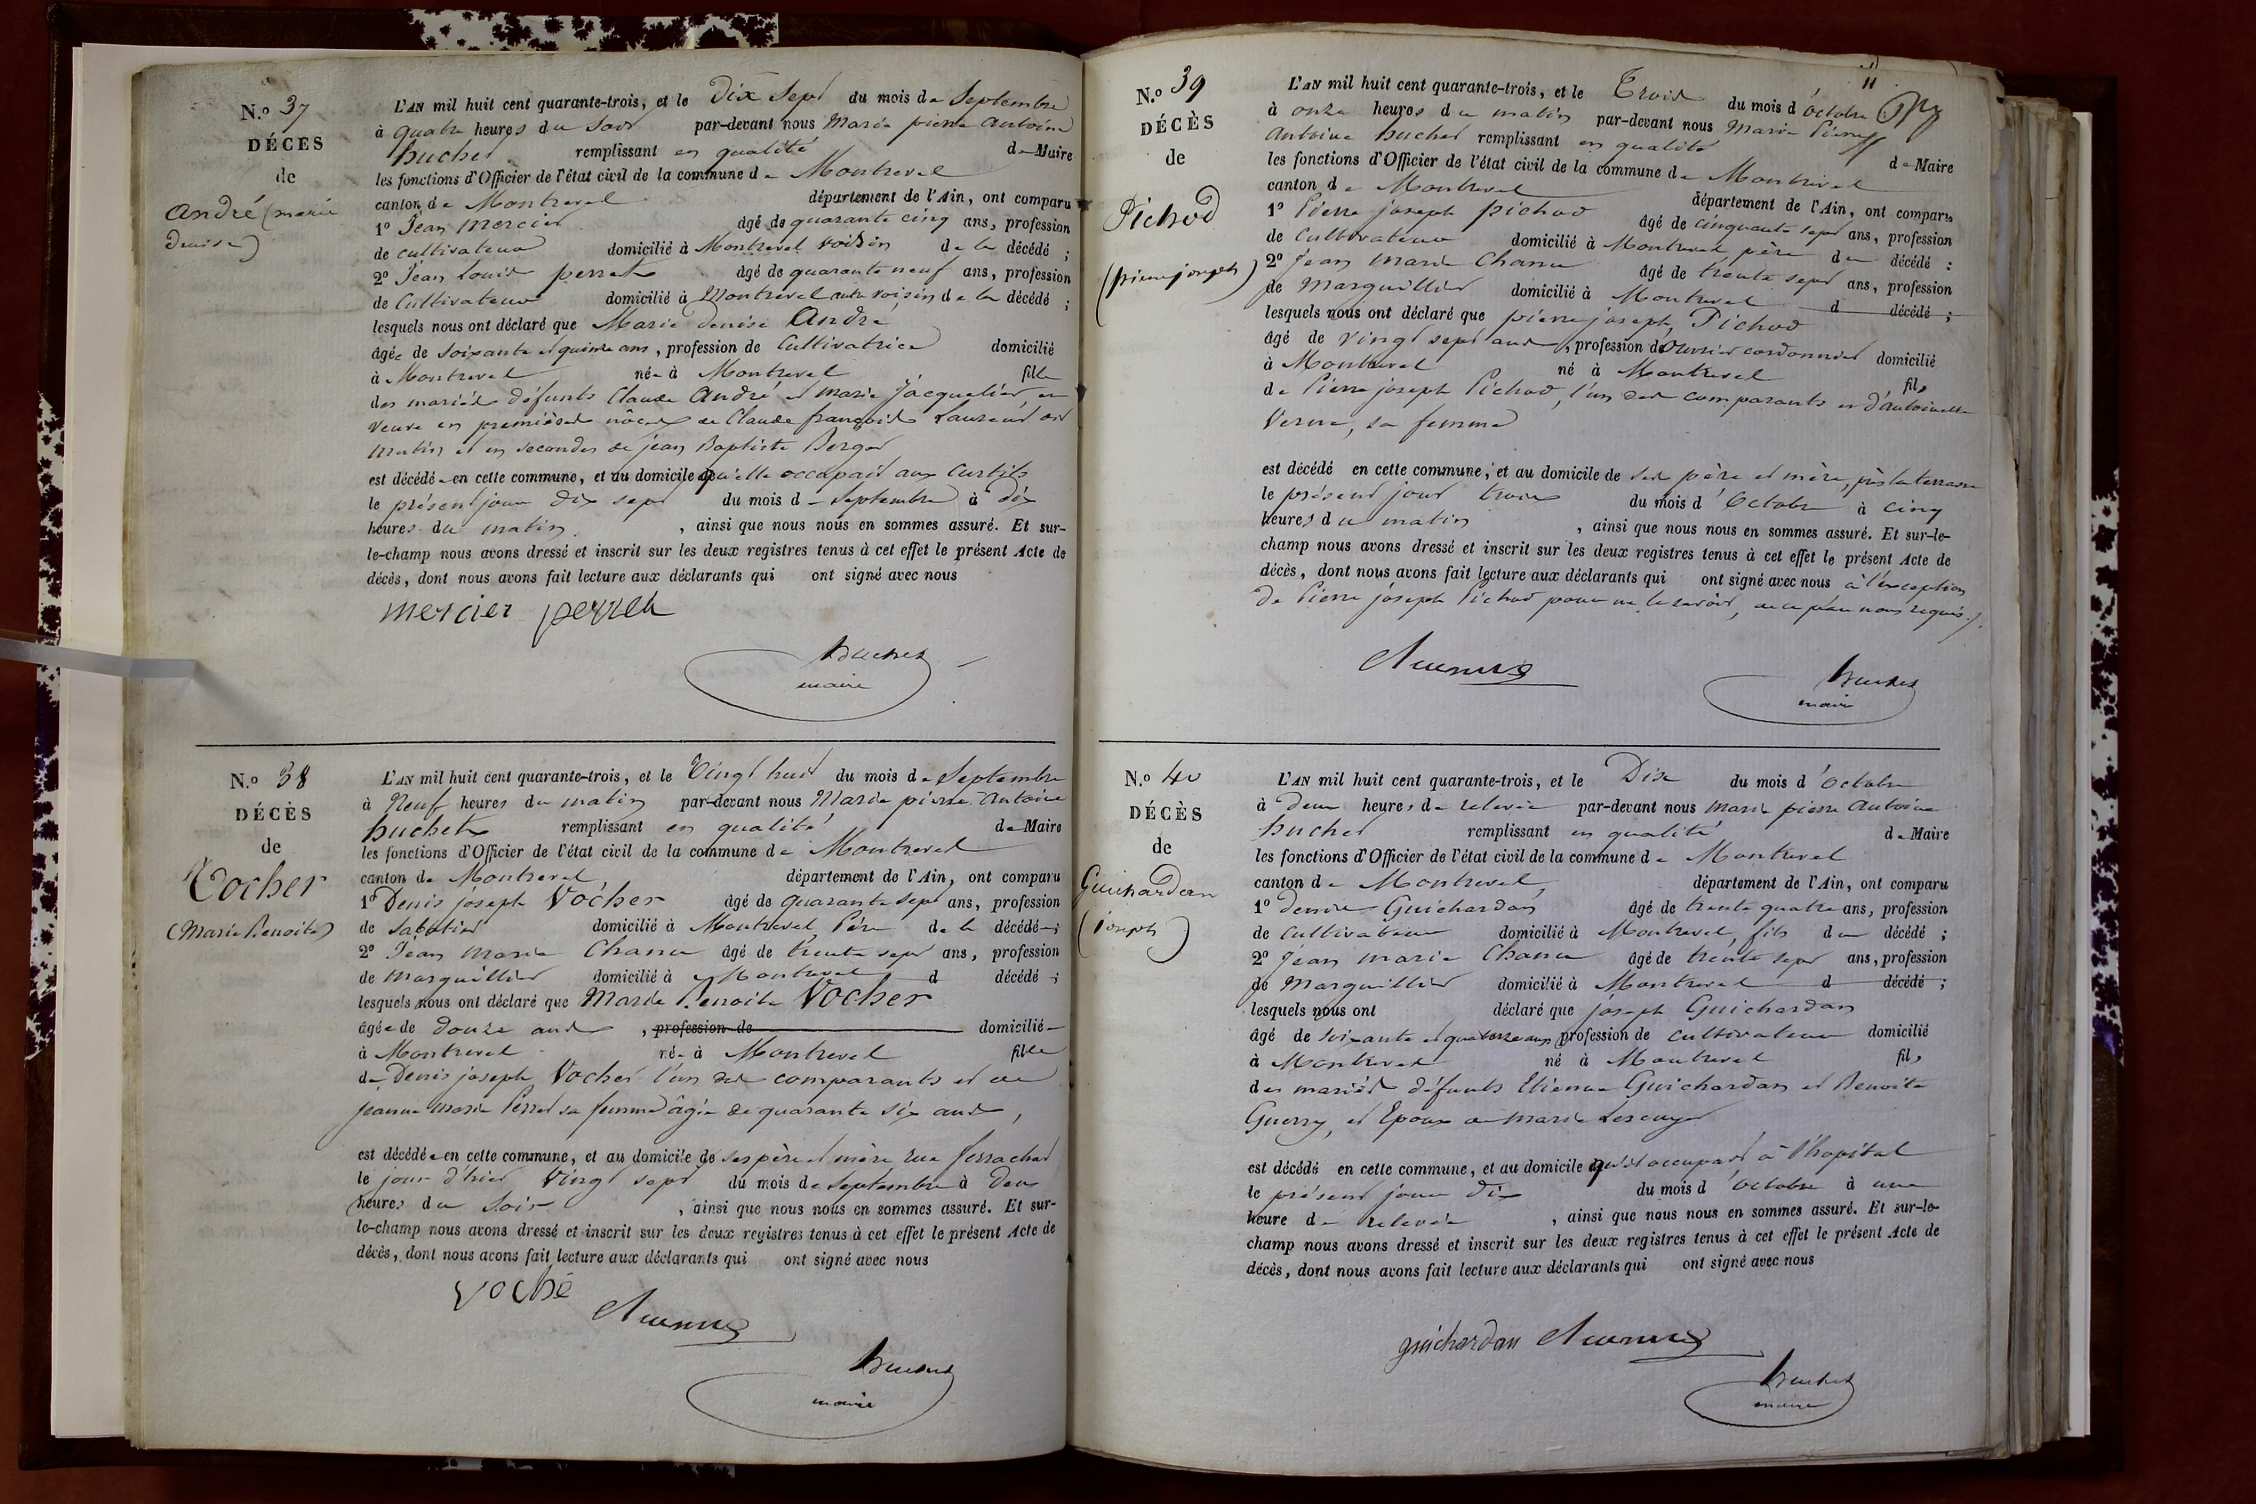 N.º 37
DÉCES
de
André (marie
denise)
L'AN mil huit cent quarante-trois, et le Dix Sept du mois de Septembre
à quatre heures du Soir par-devant nous Marie pierre antoine
huchet remplissant en qualité de Maire
les fonctions d'Officier de l'état civil de la commune de Montrevel
canton de Montrevel département de l'Ain, ont comparu
1º Jean Mercier âgé de quarante cinq ans, profession
de cultivateur domicilié à Montrevel voisin de la décédé ;
2º Jean Louis perret âgé de quarante neuf ans, profession
de Cultivateur domicilié à Montrevel autre voisin de la décédé ;
lesquels nous ont déclaré que Marie denise André
âgée de soixante et quinze ans, profession de Cultivatrice domicilié
à Montrevel née à Montrevel fille
des mariés défunts Claude André et marie Jacquelier, en
veuve en premières nôces de Claude françois Laurent dit
matin et en secondes de jean Baptiste Berger
est décédée en cette commune, et au domicile qu'elle occupait aux Curtils
le présent jour dix sept du mois de septembre à dix
heures du matin, ainsi que nous nous en sommes assuré. Et sur-
le-champ nous avons dressé et inscrit sur les deux registres tenus à cet effet le présent Acte de
décès, dont nous avons fait lecture aux déclarants qui ont signé avec nous
mercier perret
huchet
maire
N.º 38
DÉCÈS
de
Vocher
(Marie Benoite)
L'AN mil huit cent quarante-trois, et le Vingt huit du mois de Septembre
à Neuf heures du matin par-devant nous Marie pierre Antoine
huchet remplissant en qualité de Maire
les fonctions d'Officier de l'état civil de la commune de Montrevel
canton de Montrevel département de l'Ain, ont comparu
1º Denis joseph Vocher âgé de quarante sept ans, profession
de Sabotier domicilié à Montrevel, Père de la décédé ;
2º Jean Marie Chanu âgé de trente sept ans, profession
de Marguillier domicilié à Montrevel d décédé ;
lesquels nous ont déclaré que Marie Benoite Vocher
âgée de douze ans, profession de domicilié
à Montrevel née à Montrevel fille
de Denis joseph Vocher l'un des comparants et de
jeanne marie Perret sa femme âgée de quarante six ans,
est décédée en cette commune, et au domicile de ses père et mère rue ferrachat
le jour d'hier Vingt sept du mois de septembre à Deux
heures du Soir, ainsi que nous nous en sommes assuré. Et sur-
le-champ nous avons dressé et inscrit sur les deux registres tenus à cet effet le présent Acte de
décès, dont nous avons fait lecture aux déclarants qui ont signé avec nous
Voché
huchet
maire
11
N.º 39
DÉCÈS
de
Pichod
(pierre joseph)
L'AN mil huit cent quarante-trois, et le Trois du mois d'Octobre
à onze heures du matin par-devant nous Marie Pierre
Antoine huchet remplissant en qualité de Maire
les fonctions d'Officier de l'état civil de la commune de Montrevel
canton de Montrevel département de l'Ain, ont comparu
1º Pierre joseph pichod âgé de cinquante sept ans, profession
de Cultivateur domicilié à Montrevel père du décédé ;
2º Jean Marie Chanu âgé de trente sept ans, profession
de Marguillier domicilié à Montrevel d décédé ;
lesquels nous ont déclaré que pierre joseph Pichod
âgé de vingt sept ans, profession d'Ouvrier cordonnier domicilié
à Montrevel né à Montrevel fils
de Pierre joseph Pichod, l'un des comparants et d'antoinette
Verne, sa femme
est décédé en cette commune, et au domicile de ses père et mère, près la terrasse
le présent jour trois du mois d'Octobre à cinq
heures du matin, ainsi que nous nous en sommes assuré. Et sur-le-
champ nous avons dressé et inscrit sur les deux registres tenus à cet effet le présent Acte de
décès, dont nous avons fait lecture aux déclarants qui ont signé avec nous à l'exception
de Pierre joseph Pichod pour ne le savoir, de ce par nous requis.
huchet
maire
N.º 40
DÉCÈS
de
Guichardan
(joseph)
L'AN mil huit cent quarante-trois, et le Dix du mois d'Octobre
à deux heures de relevée par-devant nous Marie pierre Antoine
huchet remplissant en qualité de Maire
les fonctions d'Officier de l'état civil de la commune de Montrevel
canton de Montrevel, département de l'Ain, ont comparu
1º denis Guichardan âgé de trente quatre ans, profession
de Cultivateur domicilié à Montrevel, fils du décédé ;
2º Jean marie Chanu âgé de trente sept ans, profession
de Marguillier domicilié à Montrevel d décédé ;
lesquels nous ont déclaré que joseph Guichardan
âgé de soixante et quatorze ans, profession de cultivateur domicilié
à Montrevel né à Montrevel fils
des mariés défunts Etienne Guichardan et Benoite
Guerry, et Epoux de marie
est décédé en cette commune, et au domicile qu'il occupait à l'hopital
le présent jour dix du mois d'Octobre à une
heure de relevée, ainsi que nous nous en sommes assuré. Et sur-le-
champ nous avons dressé et inscrit sur les deux registres tenus à cet effet le présent Acte de
décès, dont nous avons fait lecture aux déclarants qui ont signé avec nous
guichardan
huchet
maire